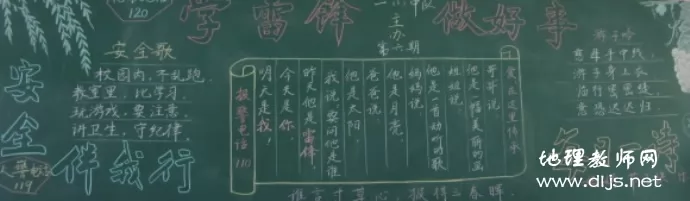 120
学雷锋 做好事
主办
第六期
安全歌
校园内，不乱跑，
教室里，比学习，
玩游戏，要注意，
讲卫生，守纪律，
安全伴我行
119
爱在这里传承
哥哥说，
他是一幅美丽的画
姐姐说，
他是一首动听的歌
妈妈说，
他是月亮，
爸爸说，
他是太阳，
我说，要问他是谁
昨天他是雷锋，
今天是你，
明天是我！
报警电话110
游子吟
慈母手中线，
游子身上衣。
临行密密缝，
意恐迟迟归。
谁言寸草心，报得三春晖。
地理教师网
www.dljs.net